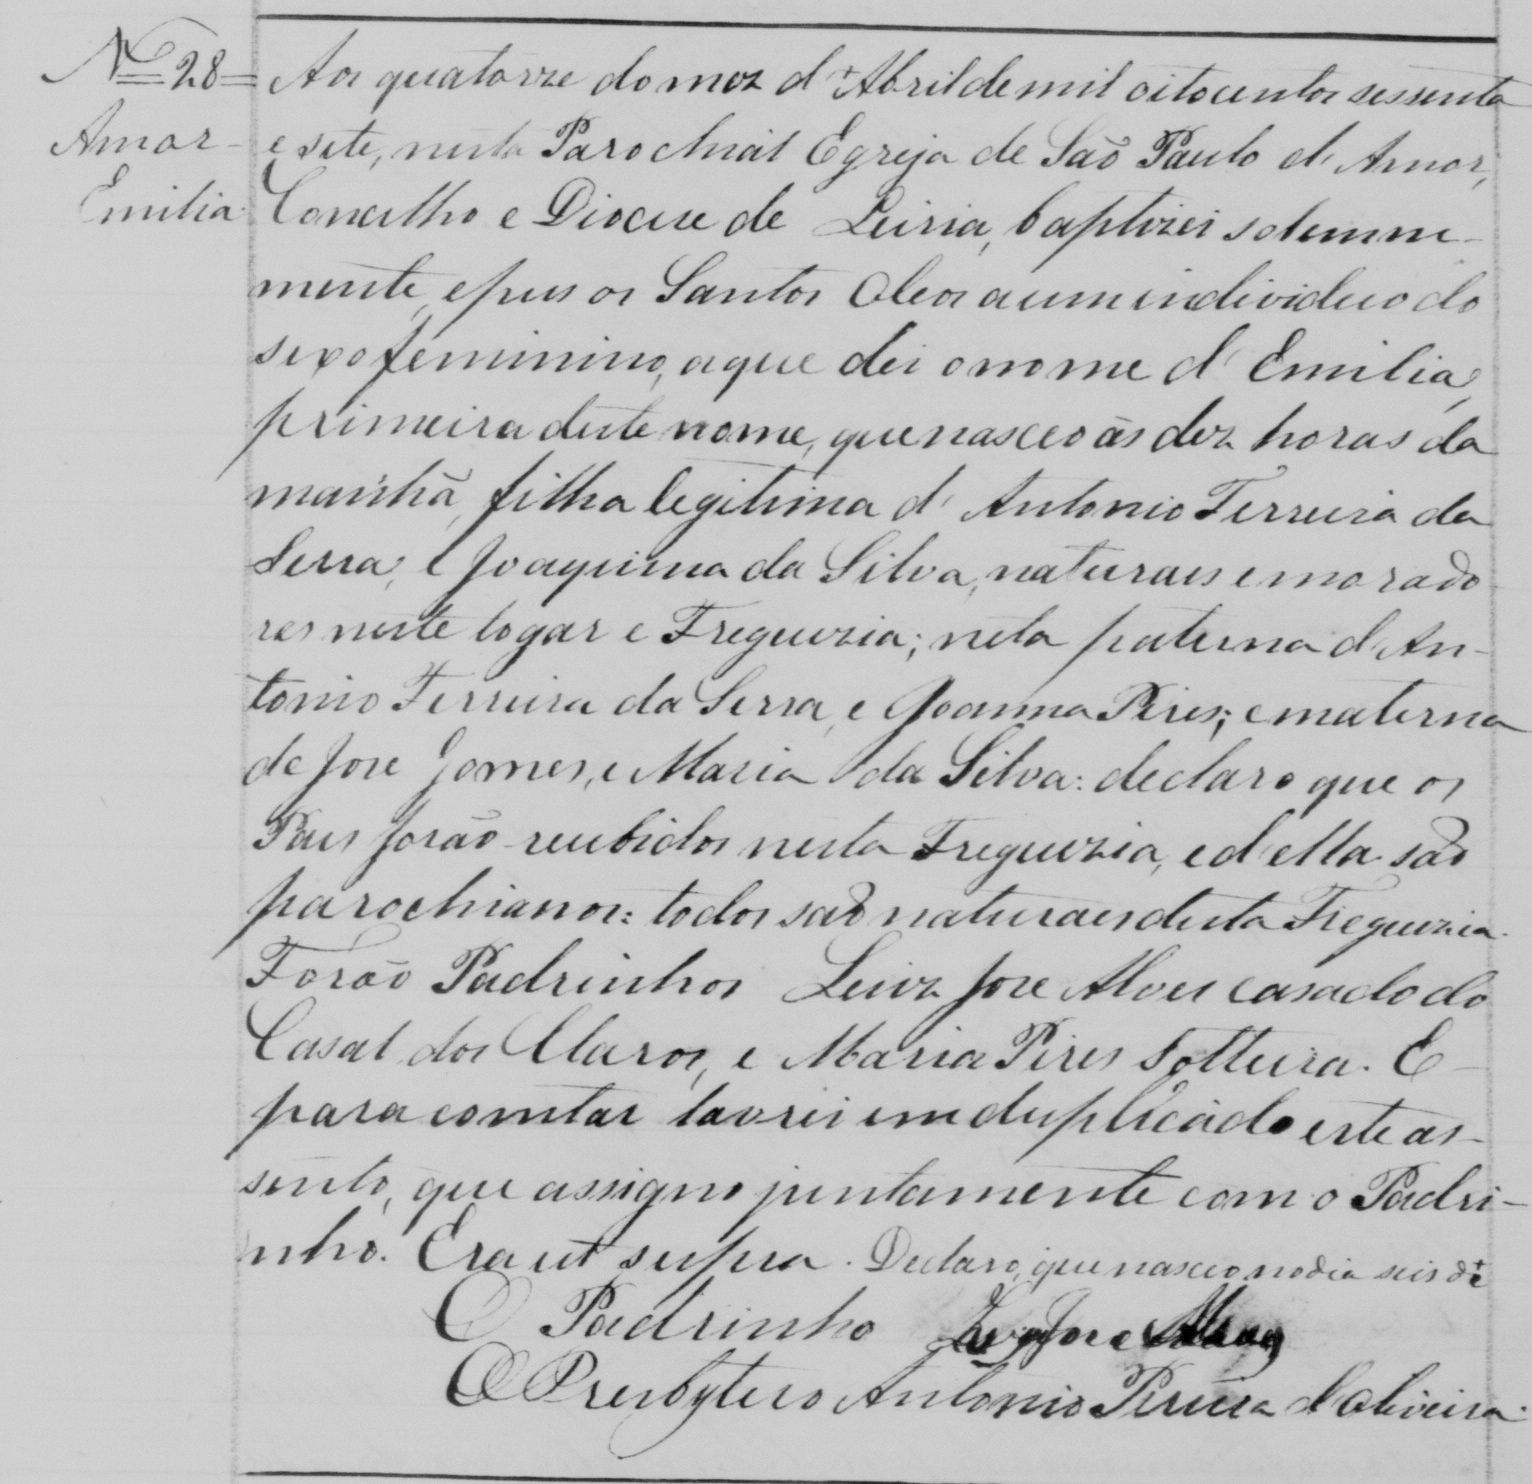 Nº 28 = Aos quatorze do mez d'Abril de mil oitocentos sessenta
Amor - e sete, nesta Parochial Egreja de São Paulo d'Amor,
Emilia Concelho e Diocese de Leiria, baptizei solemne-
mente, e pus os Santos Oleos a um individuo do
sexo feminino, a que dei o nome d'Emilia,
primeira deste nome, que nasceo ás dez horas da
manhã, filha legitima d'Antonio Ferreira da
Serra, e Joaquina da Silva, naturaes e morado-
res neste logar e Freguezia; neta paterna d'An-
tonio Ferreira da Serra, e Joanna Pires; e materna
de Jose Gomes, e Maria da Silva: declaro que os
Pais forão recebidos nesta Freguezia, e d'ella são
parochianos: todos são naturaes desta Freguezia.
Forão Padrinhos Luiz Jose Alves casado do
Casal dos Claros, e Maria Pires solteira. E
para constar lavrei em duplicado este as-
sento, que assigno juntamente com o Padri-
nho. Era ut supra. Declaro, que nasceo no dia seis dº
O Padrinho Luiz Jose Alves
O Presbytero Antonio Pereira d'Oliveira.